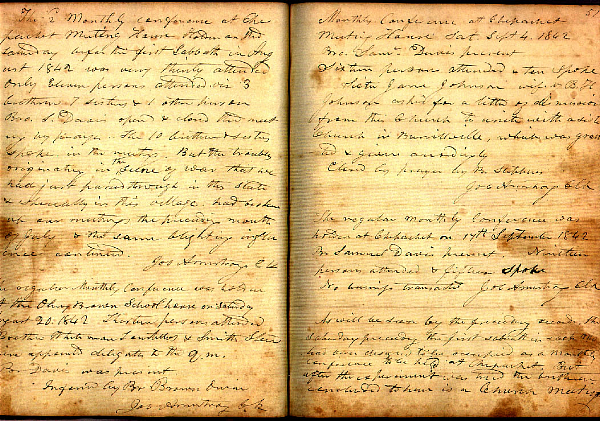 The 2 Monthly conference at the
packet Meeting House Holden on the
Saturday before the first Sabbath in Aug
ust 1842 was very thinly attended
Only Eleven persons attended viz 3
brethren 7 sisters & 1 other person
Bro. S. Davis opend & closed the meet
ing by prayer. The 10 brethren & sisters
Spoke in the meeting. But the troubles
originating in the Scene of war that we
had just passed through in this State
& Especially in this village had broken
up our meetings the preceding month
of July & the same blighting influ
ence continued
Jos Armstrong Clk
regular Monthly Conference was holden
at the Oliver Brown School house on Saturday
August 20. 1842. Thirteen persons attended
& Smith
were appointed delegates to the Q. M.
Br Davis was present
by Br Brown
Jos Armstrong Clk
51
Monthly Conference at Chepachet
Meeting House Sat. Sept 4. 1842
Bro. Saml. Davis present
Sixteen persons attended & ten Spoke
Sister Jane Johnson wife of B. H
Johnson asked for a letter of dismission
from this Church to unite with a sister
Church in Burrillville, which was gran
ted & given accordingly
Closed by prayer by Br Stephen
Jos Armstrong Clk
The regular Monthly Conference was
holden at Chepachet on 17th September 1842
Br Samuel Davis present. Nineteen
persons attended & fifteen Spoke
No business transacted Jos Armstrong Clk
As will be seen by the preceding records the
Saturday preceding the first Sabbath in each month
has been designed to be occupied as a monthly
Conference to be held at Chepachet But
after the experiment was tried the brethren
concluded to have it a Church Meeting